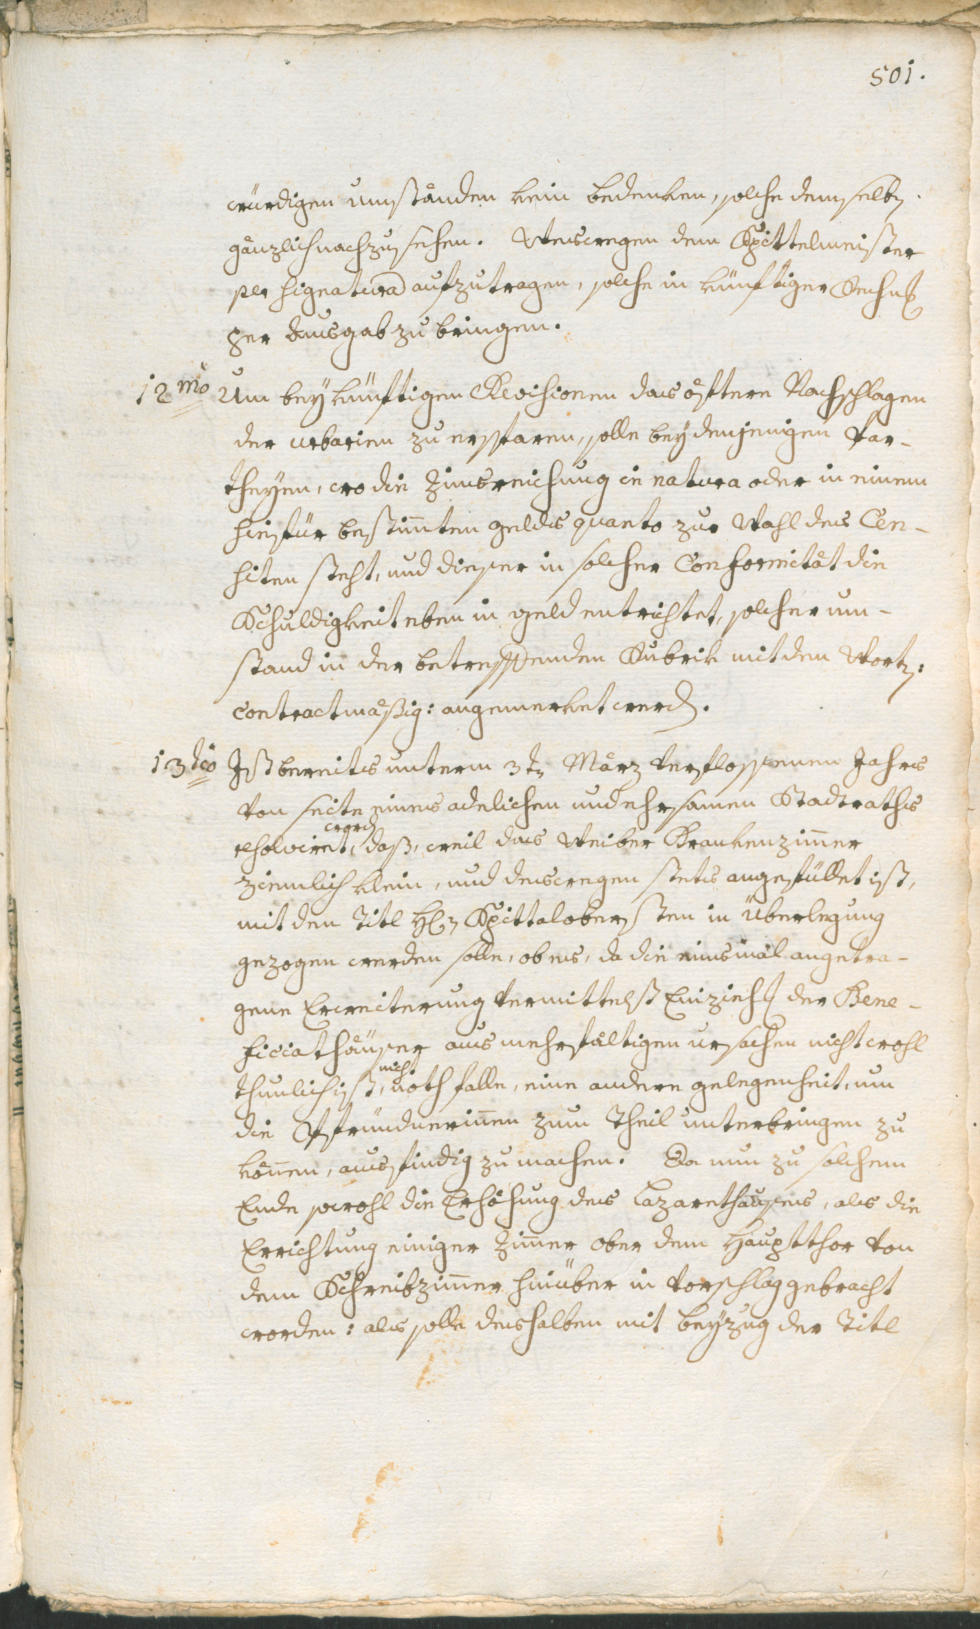 501.
würdigen umständen kein bedenken, solche demselb(en)
gänzlich nachzusehen. Weswegen dem Spittelmeister
per signatura aufzutragen, solche in künftiger Rechn(ung)
per Ausgab zu bringen.
12mo Um bey künftigen Revisionen das öftere Nachschlagen
der urbarien zu ersparen, solle bey denjenigen Par-
theyen, wo die Zinsreichung in natura oder in einem
hiefür bestimten geldes quanto zur Wahl des Cen-
siten steht, und dieser in solcher Conformität die
Schuldigkeit eben in geld entrichtet, solcher um-
stand in der betreffenden Rubrik mit dem Wort:
contractmäßig: angemerket werd(en).
13tio Ist bereits unterm 3t(en) März verflossenen Jahrs
von seite eines adelichen und ehrsamen Stadtraths
word(en)
resolvirt, daß, weil das Weiber Krankenzimer
ziemlich klein, und deswegen stets angefüllet ist,
mit den Titl H(erre)n Spittalobersten in Überlegung
gezogen werden solle, ob es, da die einsmäl angetra-
gene Erweiterung vermittelst Einzieh(ung) der Bene-
ficiathäuser aus mehrfältigen ursachen nicht wohl
nicht
thunlich ist, noth falle, eine andere gelegenheit, um
die Pfründnerinen zum Theil unterbringen zu
könen, ausfindig zu machen. Da nun zu solchem
Ende sowohl die Erhöhung des Lazarethhauses, als die
Errichtung einiger Zimer ober dem Hauptthor von
dem Schreibzimer hinüber in Vorschlag gebracht
worden: als solle deshalben mit beyzug der Titl